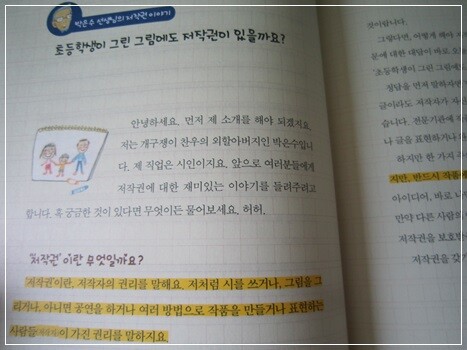 박은수 선생님의 저작권 이야기
초등학생이 그린 그림에도 저작권이 있을까요?
안녕하세요. 먼저 제 소개를 해야 되겠지요.
저는 개구쟁이 찬우의 외할아버지인 박은수입니
다. 제 직업은 시인이지요. 앞으로 여러분들에게
저작권에 대한 재미있는 이야기를 들려주려고
합니다. 혹 궁금한 것이 있다면 무엇이든 물어보세요. 허허.
'저작권'이란 무엇일까요?
'저작권'이란, 저작자의 권리를 말해요. 저처럼 시를 쓰거나, 그림을 그
리거나, 아니면 공연을 하거나 여러 방법으로 작품을 만들거나 표현하는
사람들이 가진 권리를 말하지요.
것이랍니다.
그렇다면, 어떻게 해야 저
문에 대한 대답이 바로 오
'초등학생이 그린 그림에
정답을 먼저 말하면
금이라도 저작자가 자
습니다. 전문가만
나 글을 표현하거나
하지만 한 가지
지만, 반드시 작품
아이디어, 바로 나
만약 다른 사람의
저작권을 보호받
저작권을 갖기